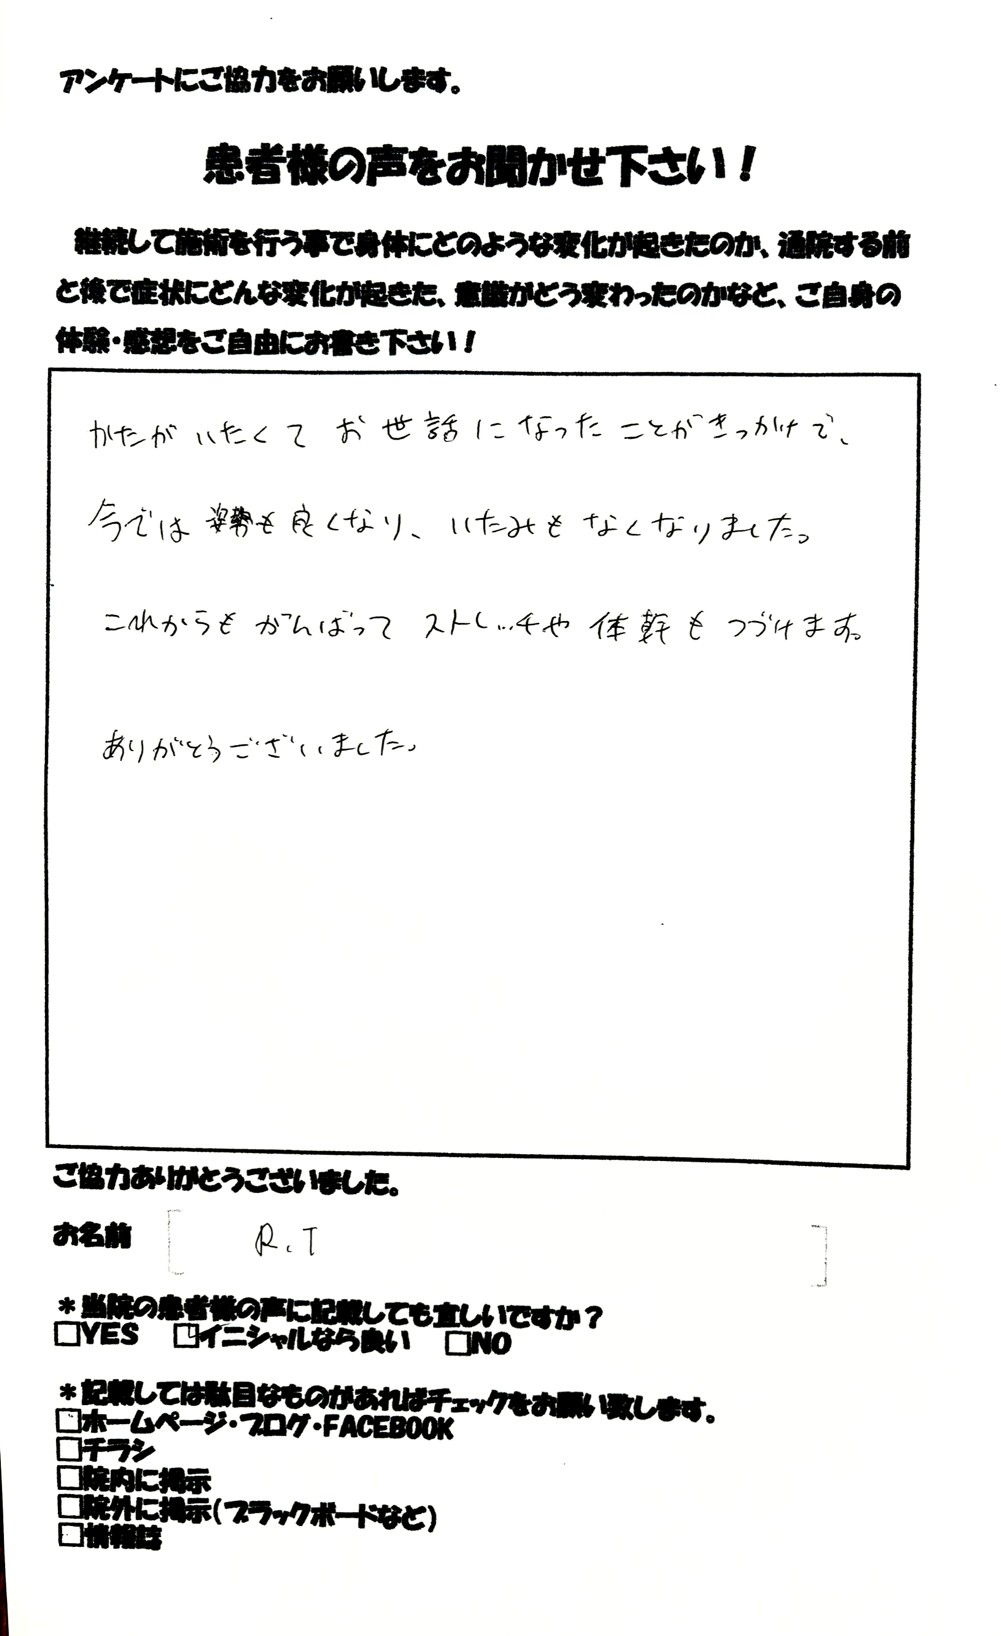 アンケートにご協力をお願いします。
患者様の声をお聞かせ下さい！
継続して施術を行う事で身体にどのような変化が起きたのか、通院する前
と後で症状にどんな変化が起きた、意識がどう変わったのかなど、ご自身の
体験・感想をご自由にお書き下さい！
かたがいたくて お世話になったことがきっかけで、
今では姿勢も良くなり、いたみもなくなりました。
これからもがんばってストレッチや体幹もつづけます。
ありがとうございました。
ご協力ありがとうございました。
お名前 R.T
＊当院の患者様の声に記載しても宜しいですか？
□YES □イニシャルなら良い □NO
＊記載しては駄目なものがあればチェックをお願い致します。
□ホームページ・ブログ・FACEBOOK
□チラシ
□院内に掲示
□院外に掲示（ブラックボードなど）
□情報誌